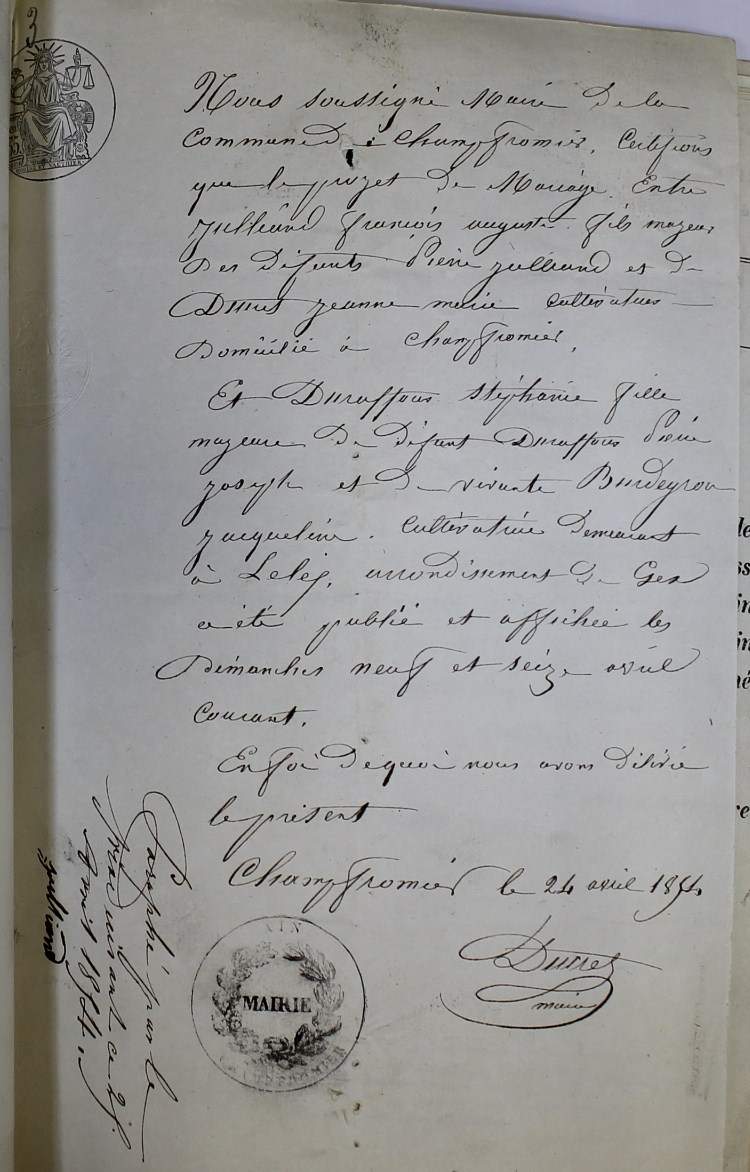 3
Nous soussigné Maire de la
Commune de Champfromier, Certifions
que le projet de Mariage. Entre
Julliard françois auguste. fils majeur
des défunts Pierre Julliard et de
Ducret Jeanne marie cultivateur
Domicilié à Champfromier,
Et Duraffour Stéphanie fille
majeure de défunt Duraffour Pierre
Joseph et de vivante Burdeyron
Jacqueline. Cultivatrice Demeurant
à Lelex, arrondissement de Gex
a été publié et affichée les
Dimanches neuf et seize avril
courant.
En foi de quoi nous avons délivré
le présent
Champfromier le 24 avril 1854
Ducret
maire
AIN
MAIRIE
CHAMPFROMIER
Paraphé par le
avril 1854.
Julliard